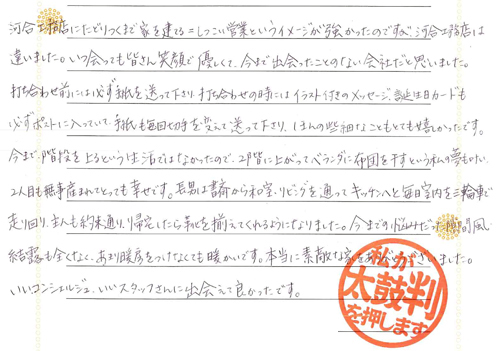 河合工務店にたどりつくまで家を建てる=しつこい営業というイメージが強かったのですが、河合工務店は
違いました。いつ会っても皆さん笑顔で優しくて、今まで出会ったことのない会社だと思いました。
打ち合わせ前には必ず手紙を送って下さり、打ち合わせの時にはイラスト付きのメッセージ、誕生日カードも
必ずポストに入っていて、手紙も毎回切手を変えて送って下さり、1ほんの些細なこともとても嬉しかったです。
今まで、階段を上るという生活ではなかったので、2階に上がってベランダに布団を干すという私の夢も叶い、
2人目も無事産まれてとっても幸せです。長男は書斎から和室、リビングを通ってキッチンへと毎日室内を三輪車で
走り回り、主人も約束通り、帰宅したら靴を揃えてくれるようになりました。今までの悩みだった隙間風・
結露も全くなく、あまり暖房をつけなくても暖かいです。本当に素敵な家をありがとうございました。
いいコンシェルジュ、いいスタッフさんに出会えて良かったです。
私が
太鼓判
を押します